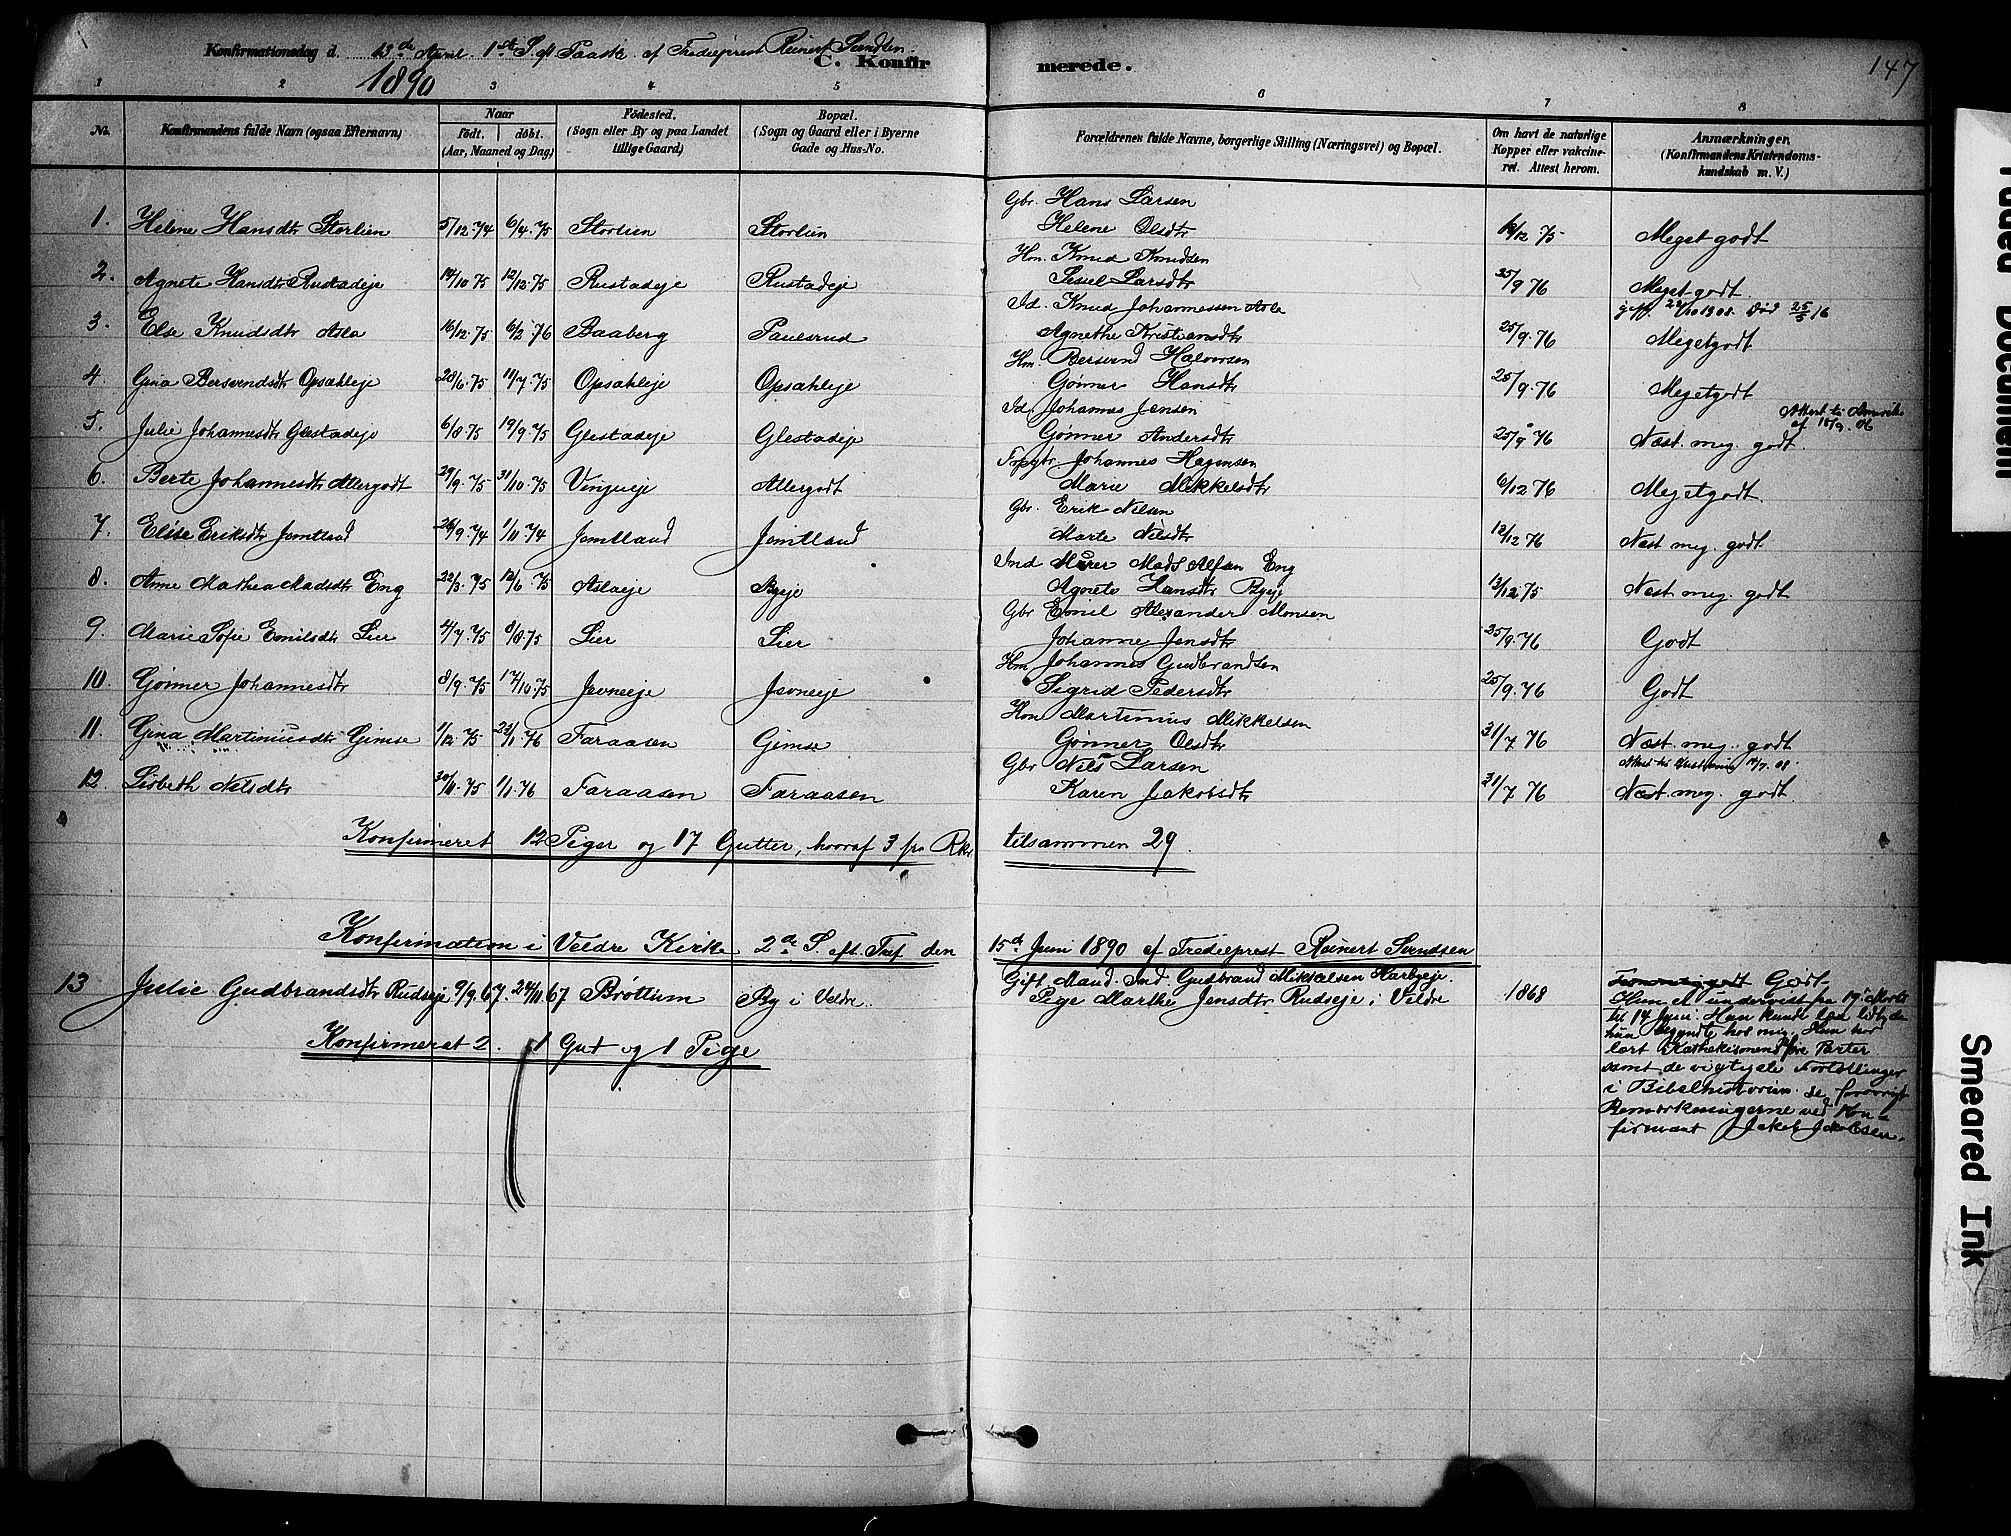 Konfirmationsdag d. 13de April 1st S. eft Paaske af Tredieprest Reinert Svendsen.
1890
C. Konfirmerede.
147
1 2 3 4 5 6 7 8
No. Konfirmandens fulde Navn (ogsaa Efternavn) Naar født. døbt. (Aar, Maaned og Dag) Fødested. (Sogn eller By og paa Landet tillige Gaard) Bopæl. (Sogn og Gaard eller i Byerne Gade og Hus-No. Forældrenes fulde Navne, borgerlige Stilling (Næringsvei) og Bopæl. Om havt de naturlige Kopper eller vakcineret. Attest herom. Anmærkninger. (Konfirmandens Kristendomskundskab m. V.)
1. Helene Hansdtr Storlien 5/12.74 6/4.75 Storlien Storlien Gbr. Hans Larsen Helene Olsdtr 14/12 75 Meget godt
2. Agnete Hansdtr Rustadeje 14/10 75 12/12.75 Rustadeje Rustadeje Hm. Knud Knudsen Sissel Larsdtr 25/9 76 Meget godt
3. Else Knudsdtr Asla 16/12.75 6/2.76 Baaberg Paulsrud Id. Knud Johannessen Asla Agnethe Kristiansdtr 25/9.76 gift 22/10 1908. Død 25/5 16 Megetgodt
4. Gina Bersvendsdtr Opsahleje 28/6.75 11/7.75 Opsahleje Opsahleje Hm. Bersvend Halvorsen Gønner Hansdtr 25/9.76 Megetgodt
5. Julie Johannesdtr Glestadeje 6/8.75 19/9.75 Glestadeje Glestadeje Id. Johannes Jensen Gønner Andersdtr 25/9 76 Attest til Amerika af 18/9. 06 Næst meg. godt.
6. Berte Johannesdtr Allergodt 29/9.75 31/10.75 Vinjueje Allergodt Johannes Hagensen Marie Mikkelsdtr 6/12 76 Megetgodt.
7. Elise Eriksdtr Jemtland 26/9.74 1/11.74 Jomtland Jomtland Gbr. Erik Nilsen Marte Nilsdtr 12/12 76 Næst meg. godt.
8. Anne Mathea Madsdtr Eng 22/3.75 12/6.75 Aslaeje Byeje Ind Murer Mads Alfsen Eng Agnete Hansdtr Byeje 13/12.75 Næst meg. godt
9. Marie Sofie Emilsdtr Lier 4/7.75 8/8.75 Lier Lier Gbr Emil Alexander Monsen Johanne Jensdtr 25/9.76 Godt
10. Gønner Johannesdtr 8/9.75 17/10.75 Jevneeje Jevneeje Hm Johannes Gudbrandsen Sigrid Pedersdtr 25/9.76 Godt
11. Gina Martiniusdtr Gimse 1/12.75 23/1.76 Faraasen Gimse Hm Martinius Mikkelsen Gønner Olsdtr 31/7 76 Næst. meg. godt
12. Lisbeth Nilsdtr 30/11.75 1/1.76 Faraasen Faraasen Gbr Nils Larsen Karen Jakobsdtr 31/7 76 Næst meg. godt.
Konfirmeret 12 Piger og 17 Gutter, hvoraf 3 fra Rks tilsammen 29.
Konfirmation i Veldre Kirke 2de S. eft. Tref den 15de Juni 1890 af Tredieprest Reinert Svendsen
13 Julie Gudbrandsdtr Rudseje 9/9.67. 24/11.67 Brøttum By i Veldre. Gift Mand Ind. Gudbrand Mikkelsen Harbyeje. Pige Marthe Jensdtr Rudseje i Veldre 1868 Godt
Hun er undervist fra 17. Marts
til 14 Juni. Hun kunde saa lidt, da
hun begyndte hos mig. Hun har
lært Kathekismens fire Parter
samt de vigtigste Fortællinger
i Bibelhistorien. Se forøvrigt
Bemærkningerne ved Konfirmant Jakob Jakobsen.
Konfirmeret 2. 1 Gut og 1 Pige
Faded Document
Smeared Ink